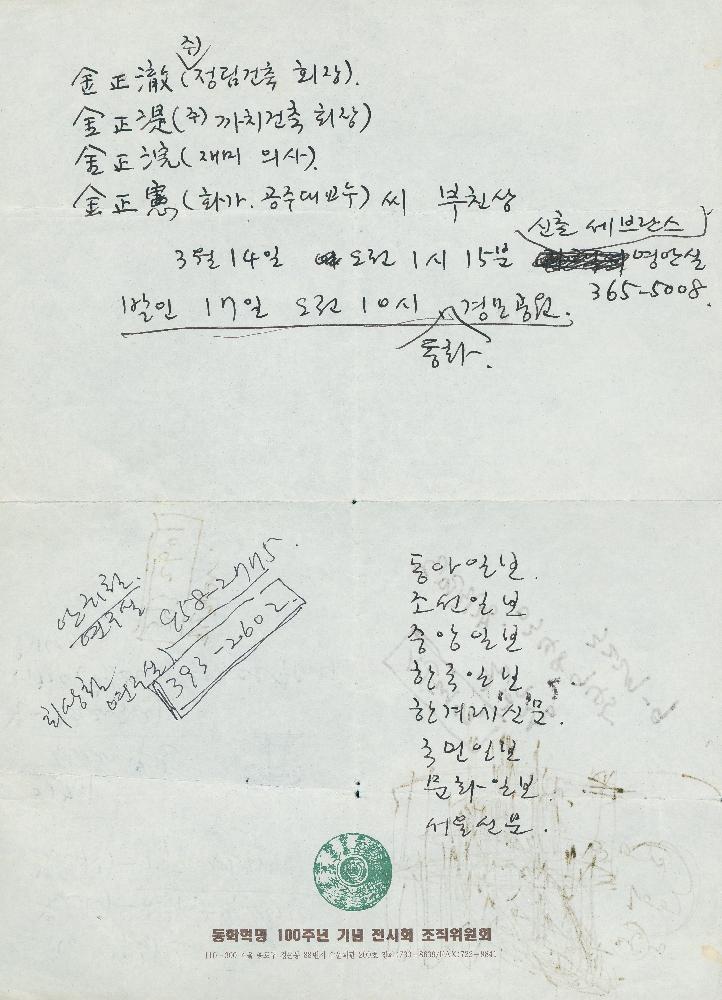 주)
金正澈 (정림건축 회장).
金正湜 (주) 까치건축 회장)
金正浣 (재미 의사).
金正憲 (화가. 공주대 교수) 씨 부친상
신촌 세브란스
3월 14일 오전 1시 15분 영안실
365-5008.
발인 17일 오전 10시 경모공원.
통화.
연구실 958-2775.
최장집 연구실 393-2602.
동아일보.
조선일보
중앙일보
한국일보.
한겨레신문.
국민일보
문화일보.
서울신문.
동학혁명 100주년 기념 전시회 조직위원회
110-300 서울 종로구 견지동 88번지 200호 전화:733-8639/FAX:722-9841